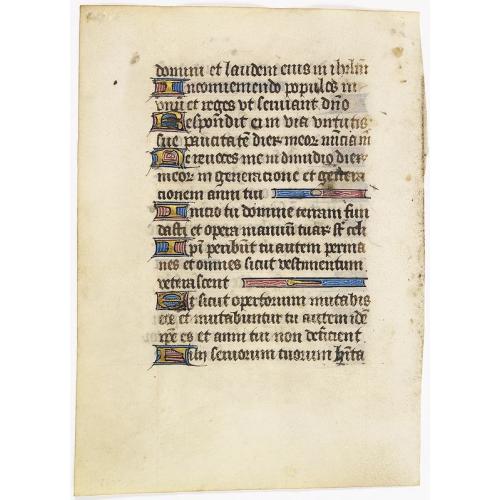 domini et laudem eius in ihrlm
In conueniendo populos in
vnu et reges vt seruiant dno
Respondit ei in via virtutis
sue paucitate dier meor nuncia m
Ne reuoces me in dimidio dier
meor in generacione et genera
cionem anni tui
Inicio tu domine terram fun
dasti et opera manuu tuar st celi
Ipi peribut tu autem perma
nes et omnes sicut vestimentum
veterascent
Et sicut opertorium mutabis
eos et mutabuntur tu autem ide
ipse es et anni tui non deficient
Filii seruorum tuorum hita